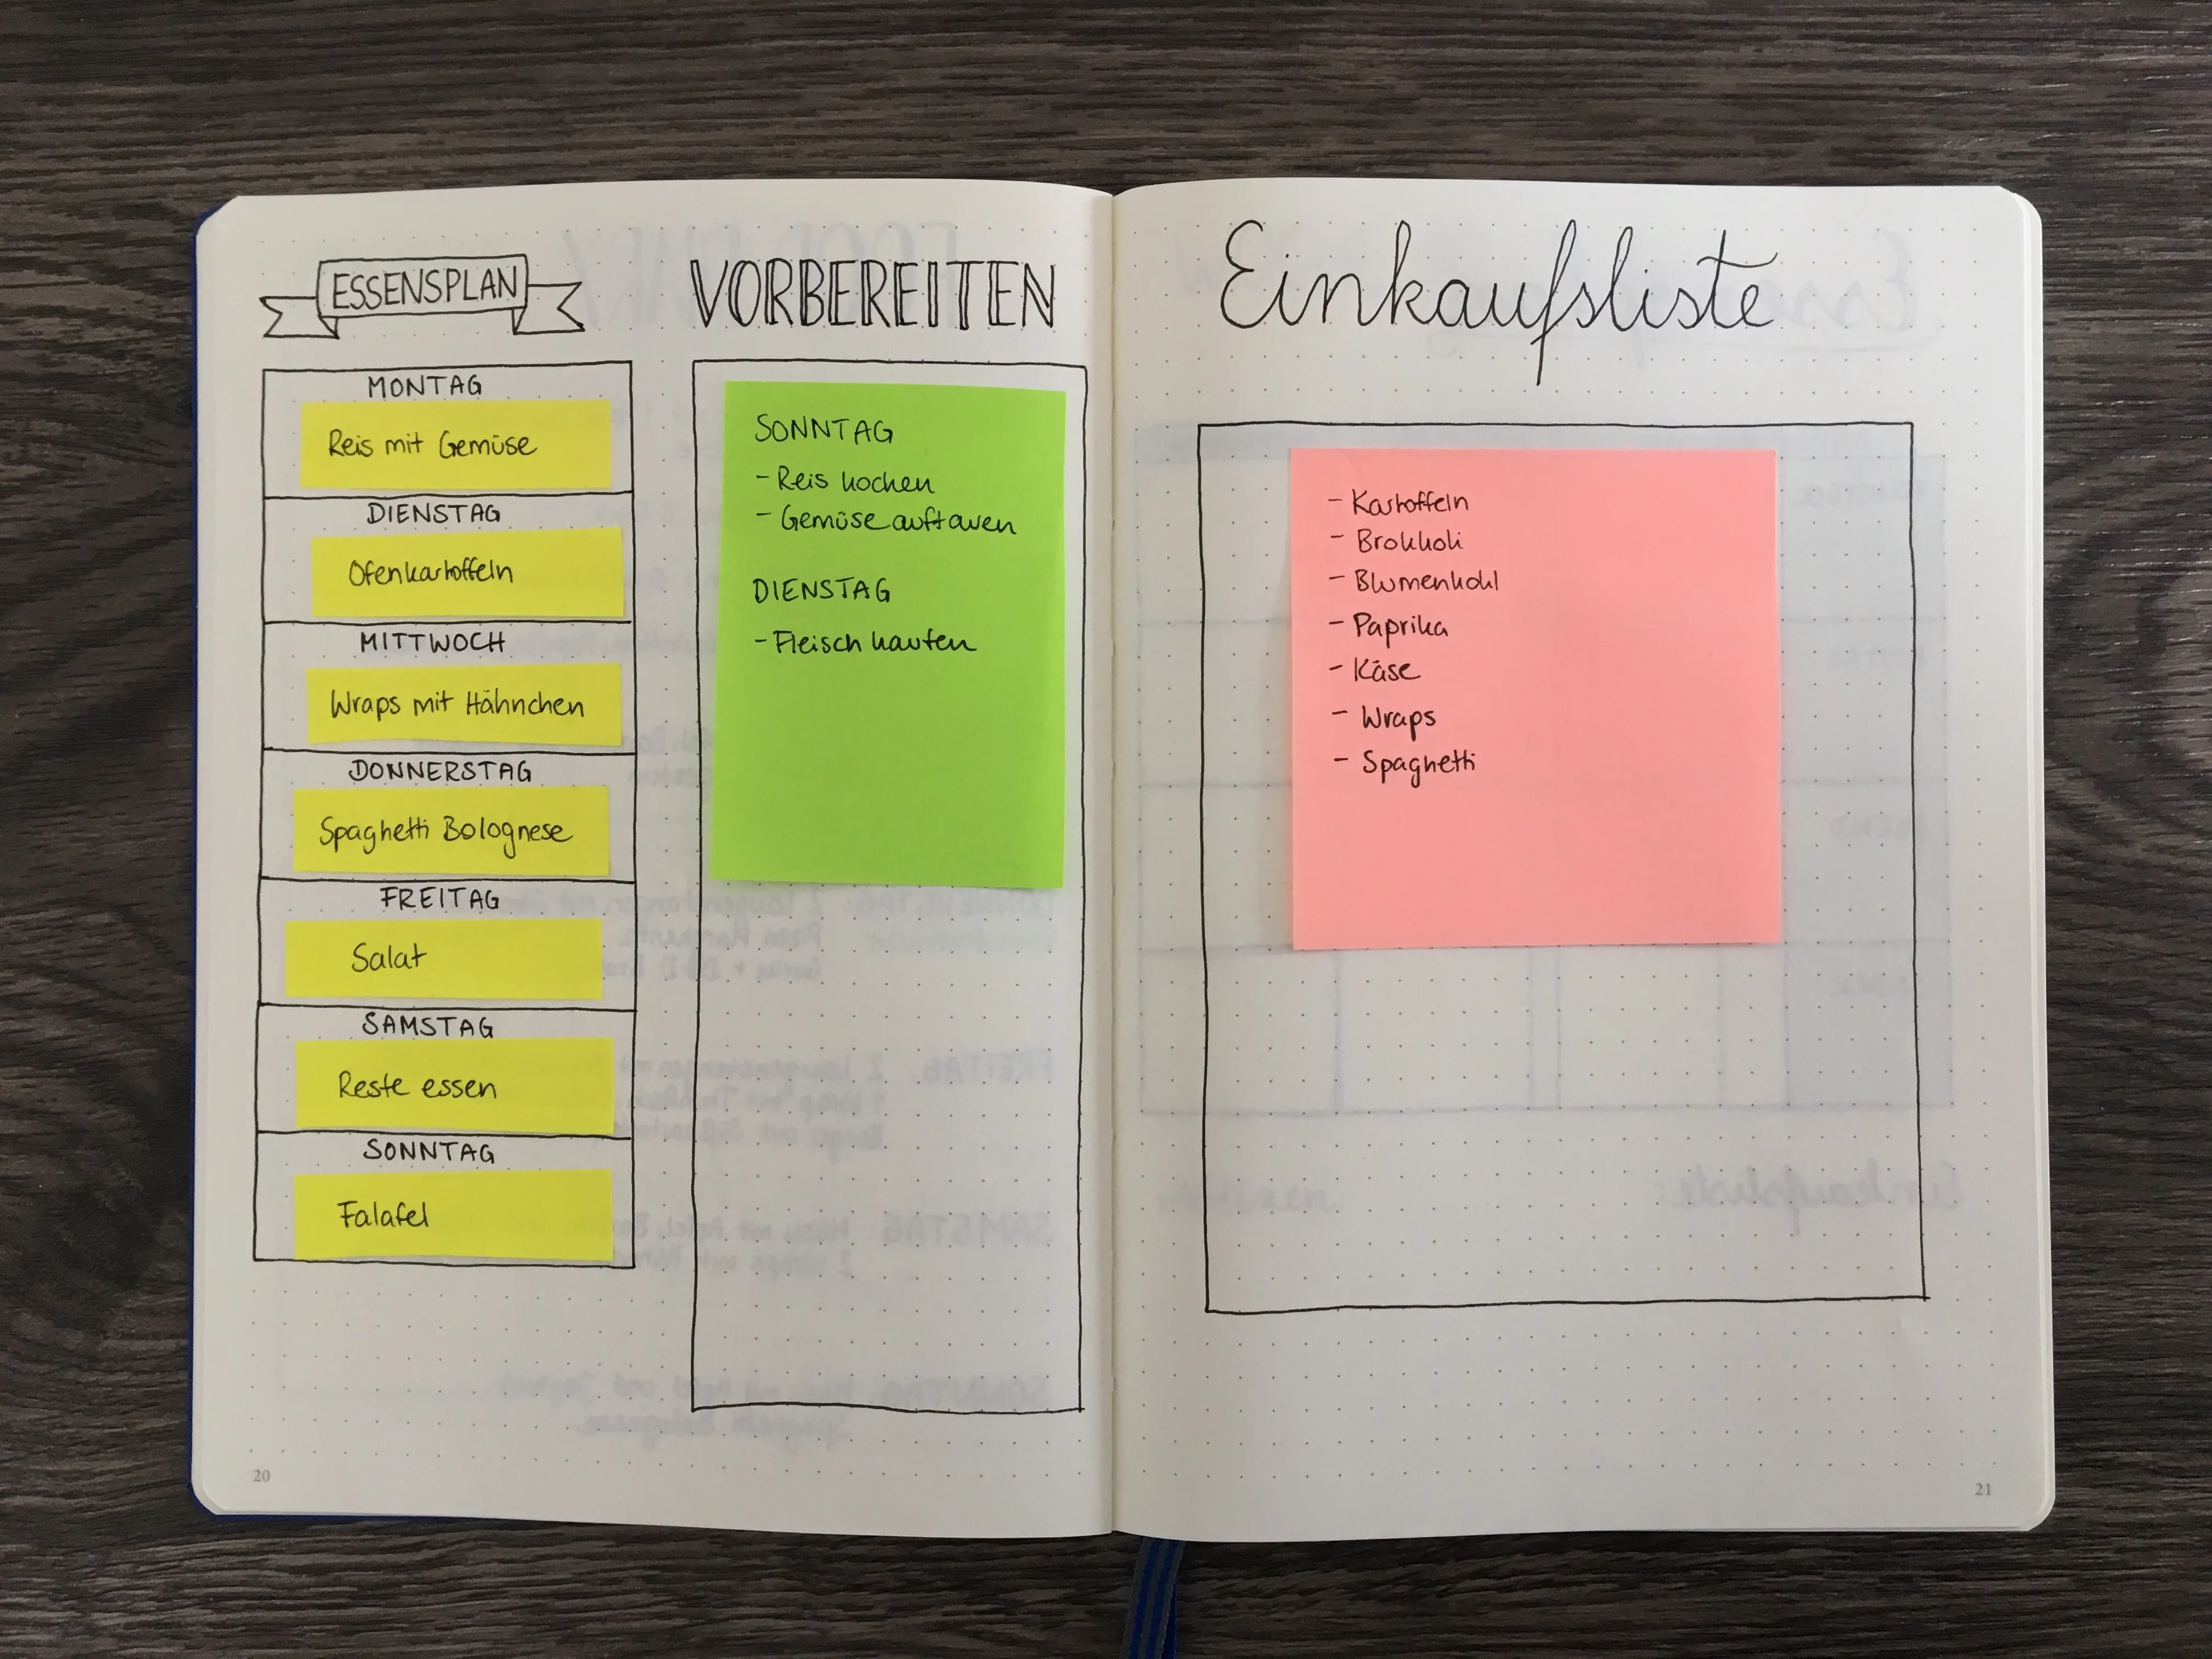 ESSENSPLAN
MONTAG
Reis mit Gemüse
DIENSTAG
Ofenkartoffeln
MITTWOCH
Wraps mit Hähnchen
DONNERSTAG
Spaghetti Bolognese
FREITAG
Salat
SAMSTAG
Reste essen
SONNTAG
Falafel
20
VORBEREITEN
SONNTAG
- Reis kochen
- Gemüse auftauen
DIENSTAG
- Fleisch kaufen
Einkaufsliste
- Kartoffeln
- Brokkoli
- Blumenkohl
- Paprika
- Käse
- Wraps
- Spaghetti
21